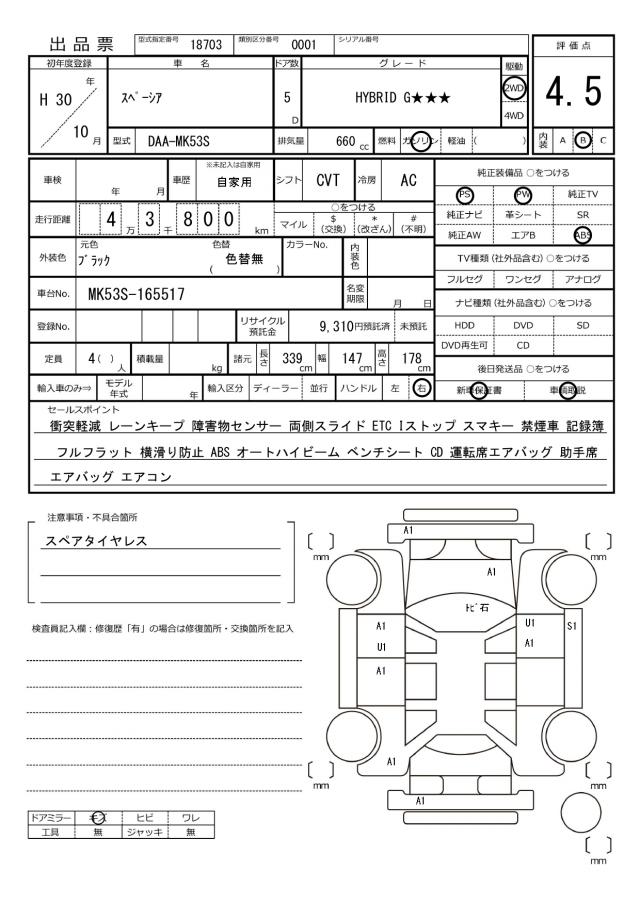 出品票 型式指定番号 18703 類別区分番号 0001 シリアル番号
評価点
4.5
内装 A B C
初年度登録 車名 ドア数 グレード 駆動
H 30 年 10 月
スペーシア
5 D
HYBRID G★★★
2WD
4WD
型式 DAA-MK53S 排気量 660 cc 燃料 ガソリン 軽油 ( )
車検 年 月 車歴 ※未記入は自家用 自家用 シフト CVT 冷房 AC
走行距離 4 万 3 千 8 0 0 km
○をつける
マイル $ (交換) * (改ざん) # (不明)
外装色 元色 ブラック 色替 ( 色替無 ) カラーNo. 内装色
車台No. MK53S-165517 名変期限 月 日
登録No. リサイクル預託金 9,310円預託済 未預託
定員 4( ) 人 積載量 kg 諸元 長さ 339 cm 幅 147 cm 高さ 178 cm
輸入車のみ⇒ モデル年式 年 輸入区分 ディーラー 並行 ハンドル 左 右
純正装備品 ○をつける
PS PW 純正TV
純正ナビ 革シート SR
純正AW エアB ABS
TV種類 (社外品含む) ○をつける
フルセグ ワンセグ アナログ
ナビ種類 (社外品含む) ○をつける
HDD DVD SD
DVD再生可 CD
後日発送品 ○をつける
新車保証書 車輌取説
セールスポイント
衝突軽減 レーンキープ 障害物センサー 両側スライド ETC Iストップ スマキー 禁煙車 記録簿
フルフラット 横滑り防止 ABS オートハイビーム ベンチシート CD 運転席エアバッグ 助手席
エアバッグ エアコン
注意事項・不具合箇所
スペアタイヤレス
検査員記入欄：修復歴「有」の場合は修復箇所・交換箇所を記入
ドアミラー キズ ヒビ ワレ
工具 無 ジャッキ 無
A1
〔 〕 mm
〔 〕 mm
A1
トビ石
A1
U1
S1
U1
A1
A1
A1
〔 〕 mm
〔 〕 mm
A1
〔 〕 mm